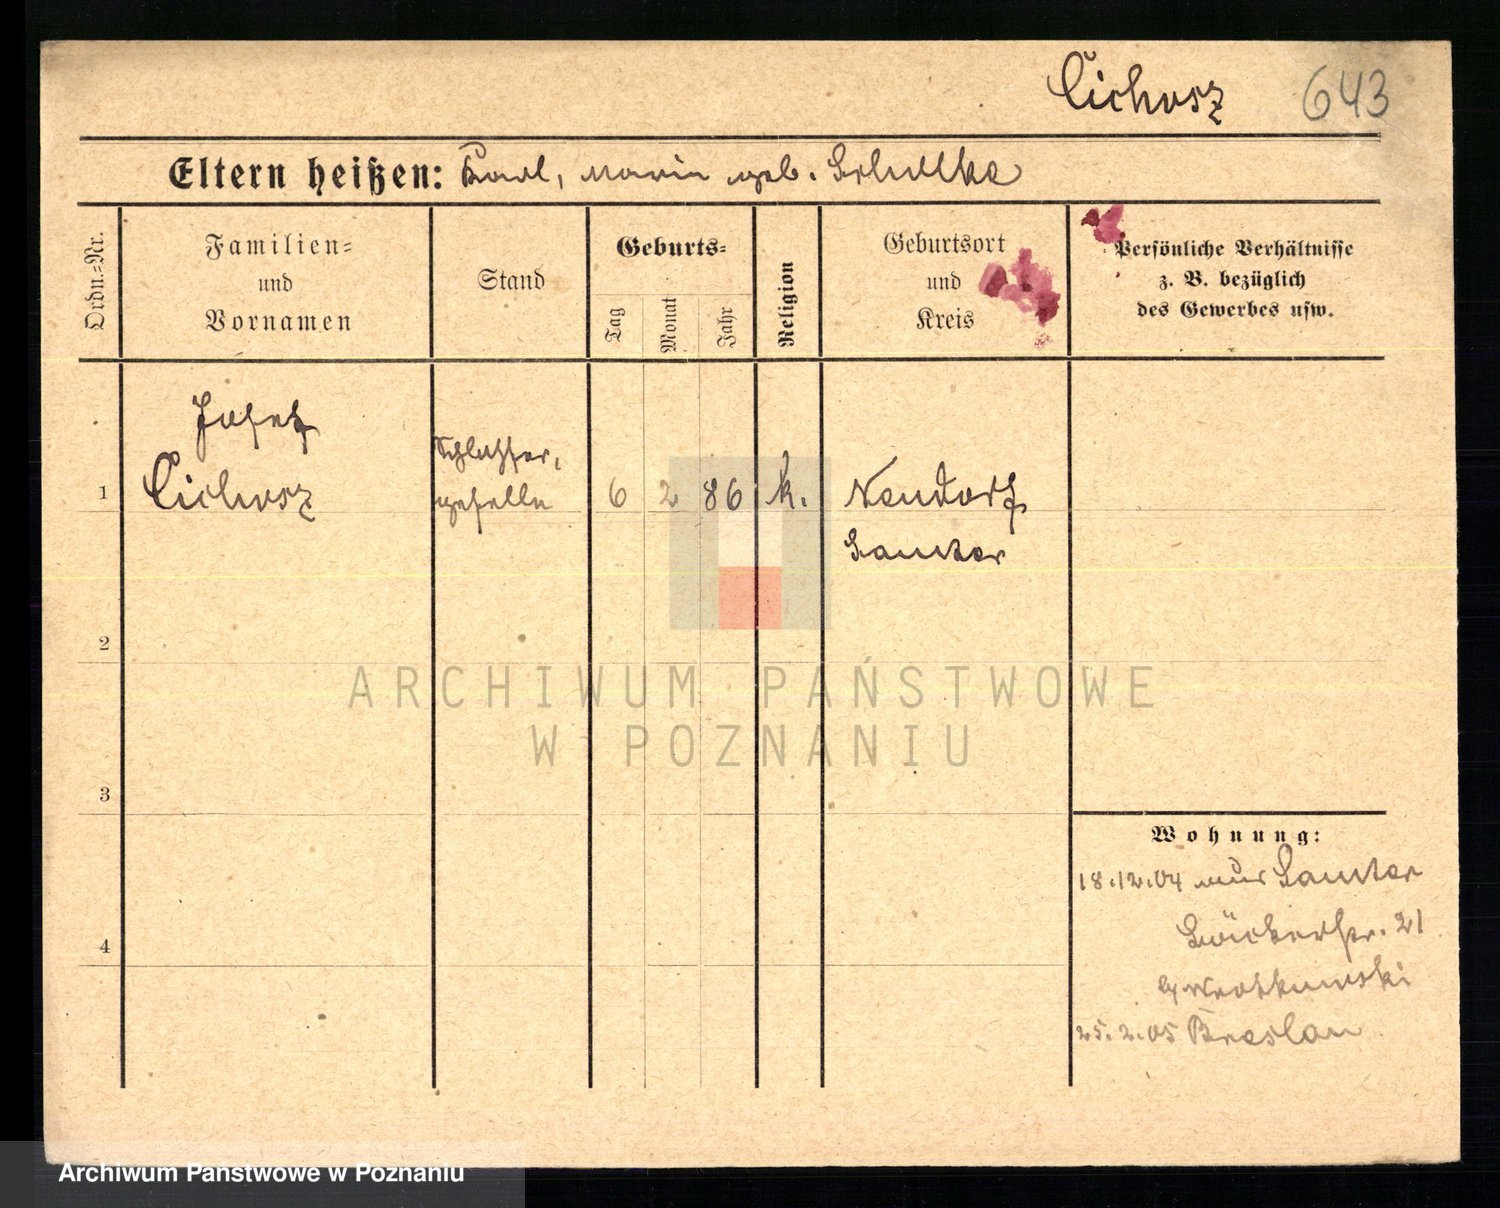 Cichosz 643
Eltern heißen: Karl, Marie geb. Schulka
Ordn.-Nr.
Familien-
und
Vornamen
Stand
Geburts-
Tag
Monat
Jahr
Religion
Geburtsort
und
Kreis
Persönliche Verhältnisse
z. B. bezüglich
des Gewerbes usw.
Josef
1 Cichosz
Schlosser,
geselle
6 2 86 k.
Neudorf
Samter
2
ARCHIWUM PAŃSTWOWE
W POZNANIU
3
4
Wohnung:
18.12.04 aus Samter
Bäckerstr. 21
b/
25.2.05 Breslau
Archiwum Państwowe w Poznaniu